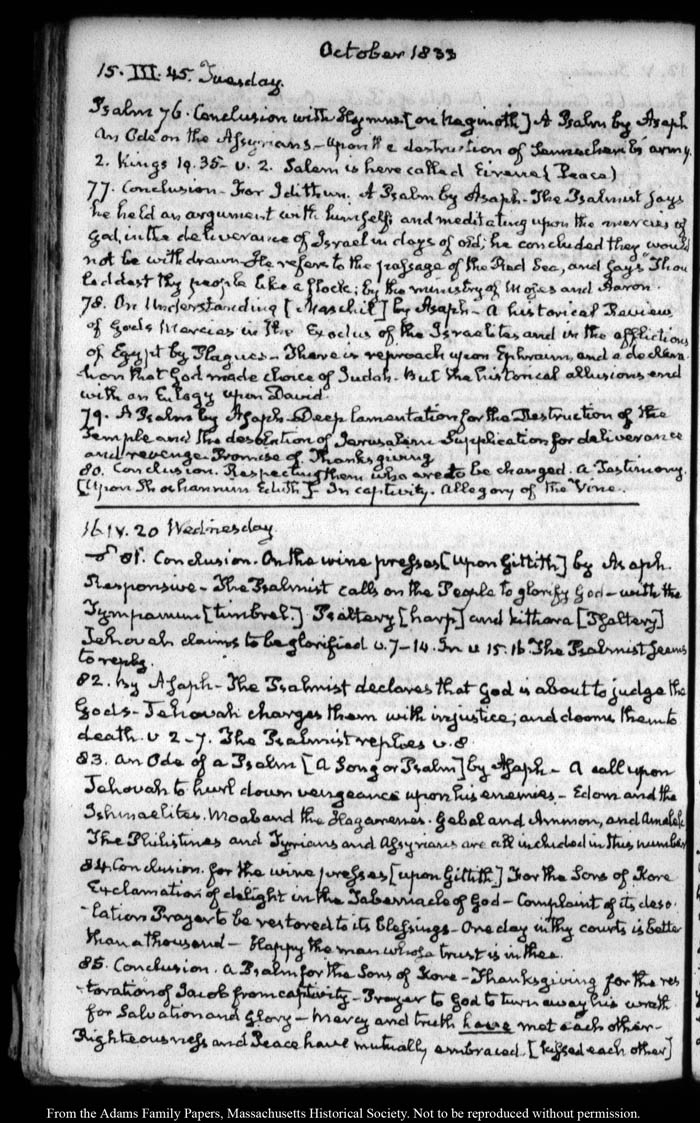 October 1833
15. III. 45. Tuesday.
Psalm 76. Conclusion with Hymns [on Neginoth] A Psalm by Asaph
An Ode on the Assyrians – upon the destruction of Sennacherib's army.
2. Kings 19. 35 – v. 2. Salem is here called Eirene (Peace)
77. Conclusion – For Idithun. A Psalm by Asaph – The Psalmist says
he held an argument with himself, and meditating upon the mercies of
God, in the deliverance of Israel in days of old; he concluded they would
not be withdrawn – He refers to the passage of the Red Sea, and says "Thou
leddest thy people like a flock; by the ministry of Moses and Aaron.
78. On Understanding [Maschil] by Asaph – A historical Review
of Gods Mercies in the Exodus of the Israelites and in the afflictions
of Egypt by Plagues – There is reproach upon Ephraim, and a declara-
tion that God made choice of Judah. But the historical allusions end
with an Eulogy upon David.
79. A Psalm by Asaph – Deep lamentation for the Destruction of the
Temple and the desolation of Jerusalem Supplication for deliverance
and revenge. Promise of Thanksgiving
80. Conclusion. Respecting them who are to be changed. A Testimony.
[Upon Shoshannim Eduth] – In captivity. Allegory of the Vine.
16. IV. 20 Wednesday.
81. Conclusion. On the wine presses [upon Gittith] by Asaph.
Responsive – The Psalmist calls on the People to glorify God – with the
Tympanum [timbrel.] Psaltery [harp] and Kithara [Psaltery]
Jehovah claims to be glorified v. 7–14. In v 15. 16. The Psalmist seems
to reply.
82. By Asaph – The Psalmist declares that God is about to judge the
Gods – Jehovah charges them with injustice; and dooms them to
death. v 2–7. The Psalmist replies v. 8.
83. An Ode of a Psalm [A Song or Psalm] by Asaph – A call upon
Jehovah to hurl down vengeance upon his enemies – Edom and the
Ishmaelites. Moab and the Hagarenes. Gebal and Ammon, and Amalek
The Philistines and Tyrians and Assyrians are all included in this number
84. Conclusion. for the wine presses [upon Gittith] For the Sons of Kore
Exclamation of delight in the Tabernacle of God – Complaint of its deso-
-lation Prayer to be restored to its blessings – One day in thy courts is better
than a thousand – Happy the man whose trust is in thee.
85. Conclusion. A Psalm for the Sons of Kore – Thanksgiving for the res
-toration of Jacob from captivity – Prayer to God to turn away his wrath
for Salvation and Glory – Mercy and truth have met each other –
Righteousness and Peace have mutually embraced. [kissed each other]
From the Adams Family Papers, Massachusetts Historical Society. Not to be reproduced without permission.